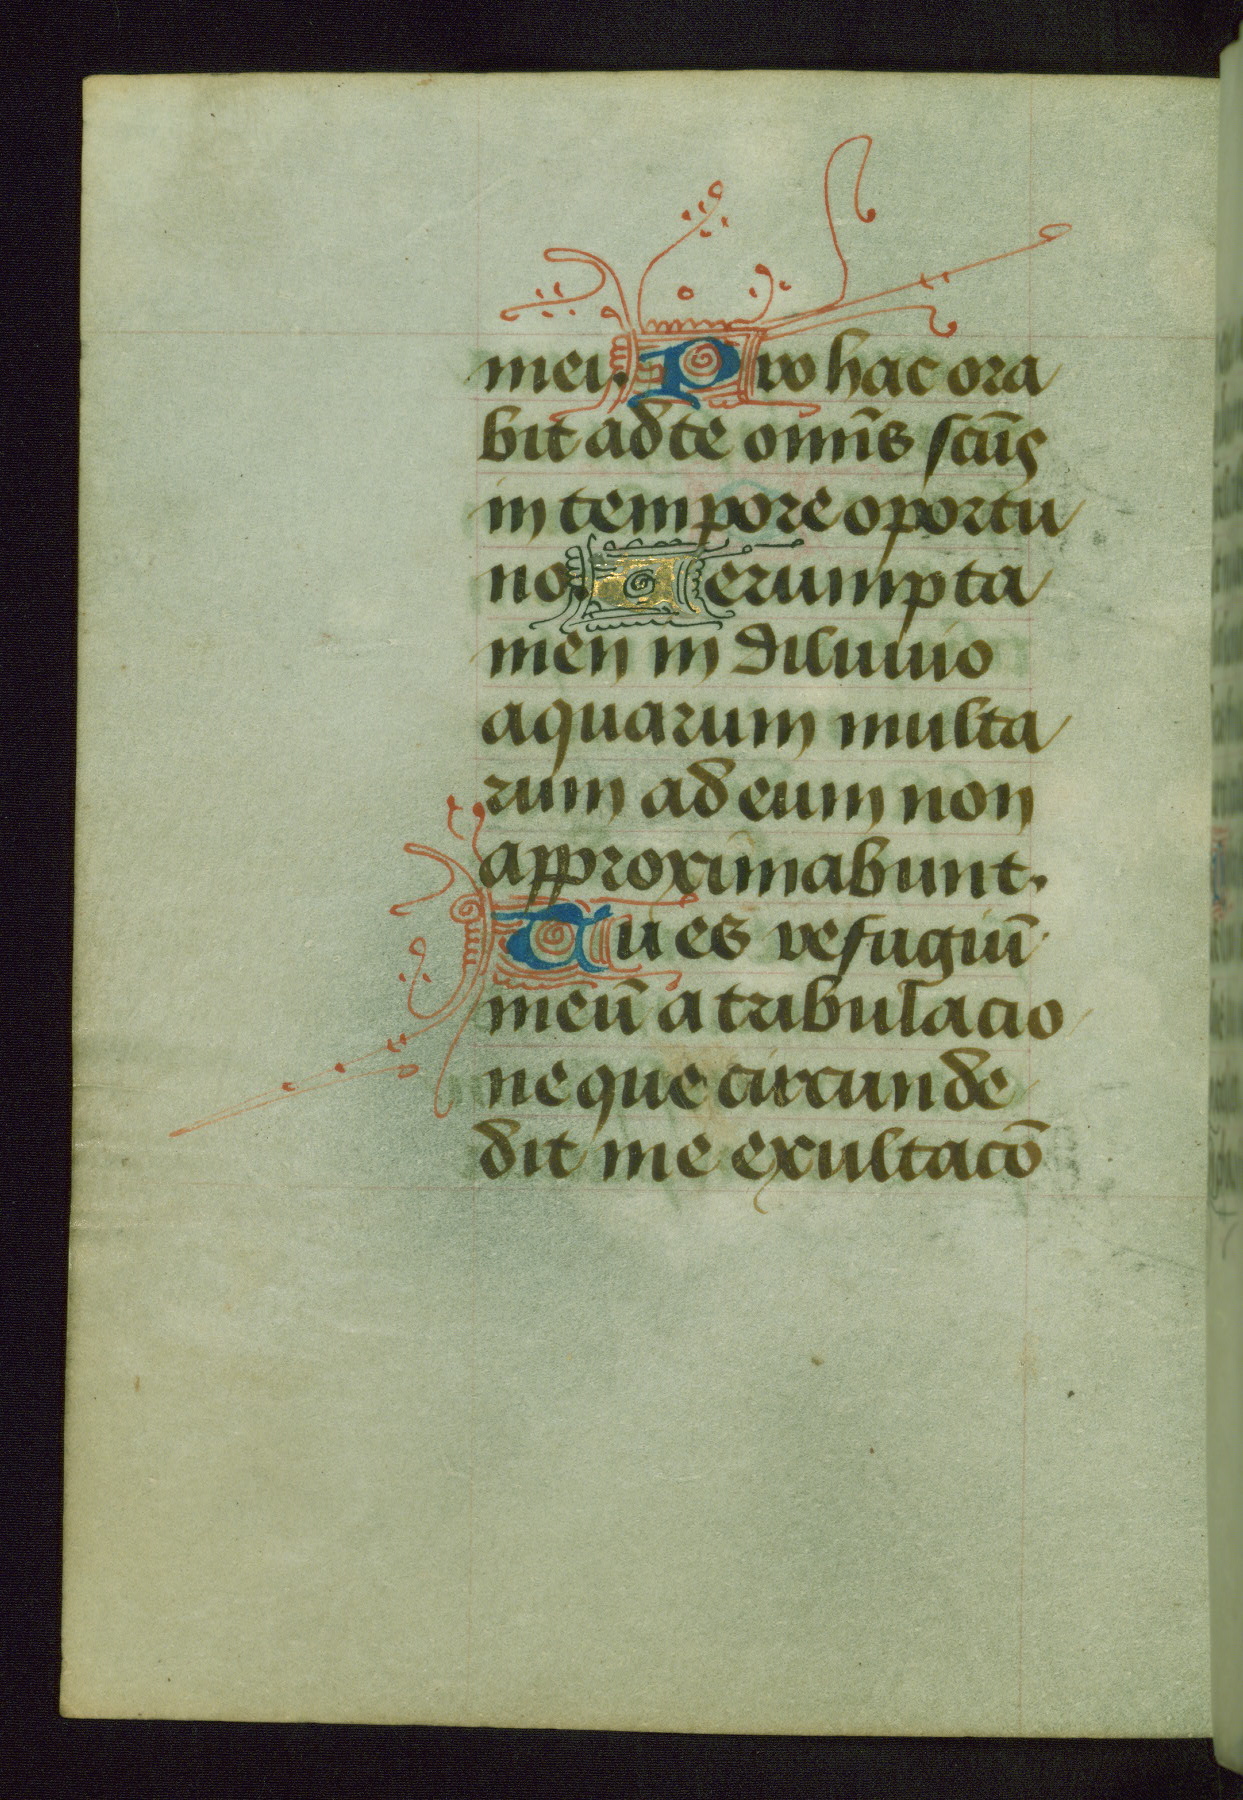 mei. Pro hac ora
bit ad te om̄s sc̄us
in tempore oportu
no. Verumpta
men in diluuio
aquarum multa
rum ad eum non
approximabunt.
Tu es refugiū
meū a tribulacio
ne que circunde
dit me exultacō